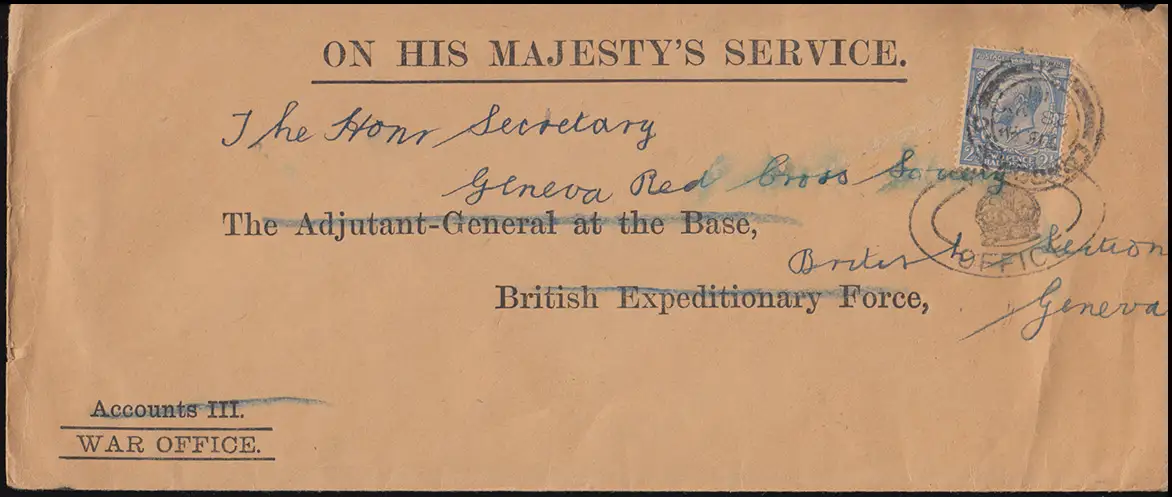 ON HIS MAJESTY'S SERVICE.
The Honr Secretary
Geneva Red Cross Society
The Adjutant-General at the Base,
British Section
British Expeditionary Force,
Geneva
Accounts III.
WAR OFFICE.
POSTAGE
2½
HALFPENCE 2½
OFFICE